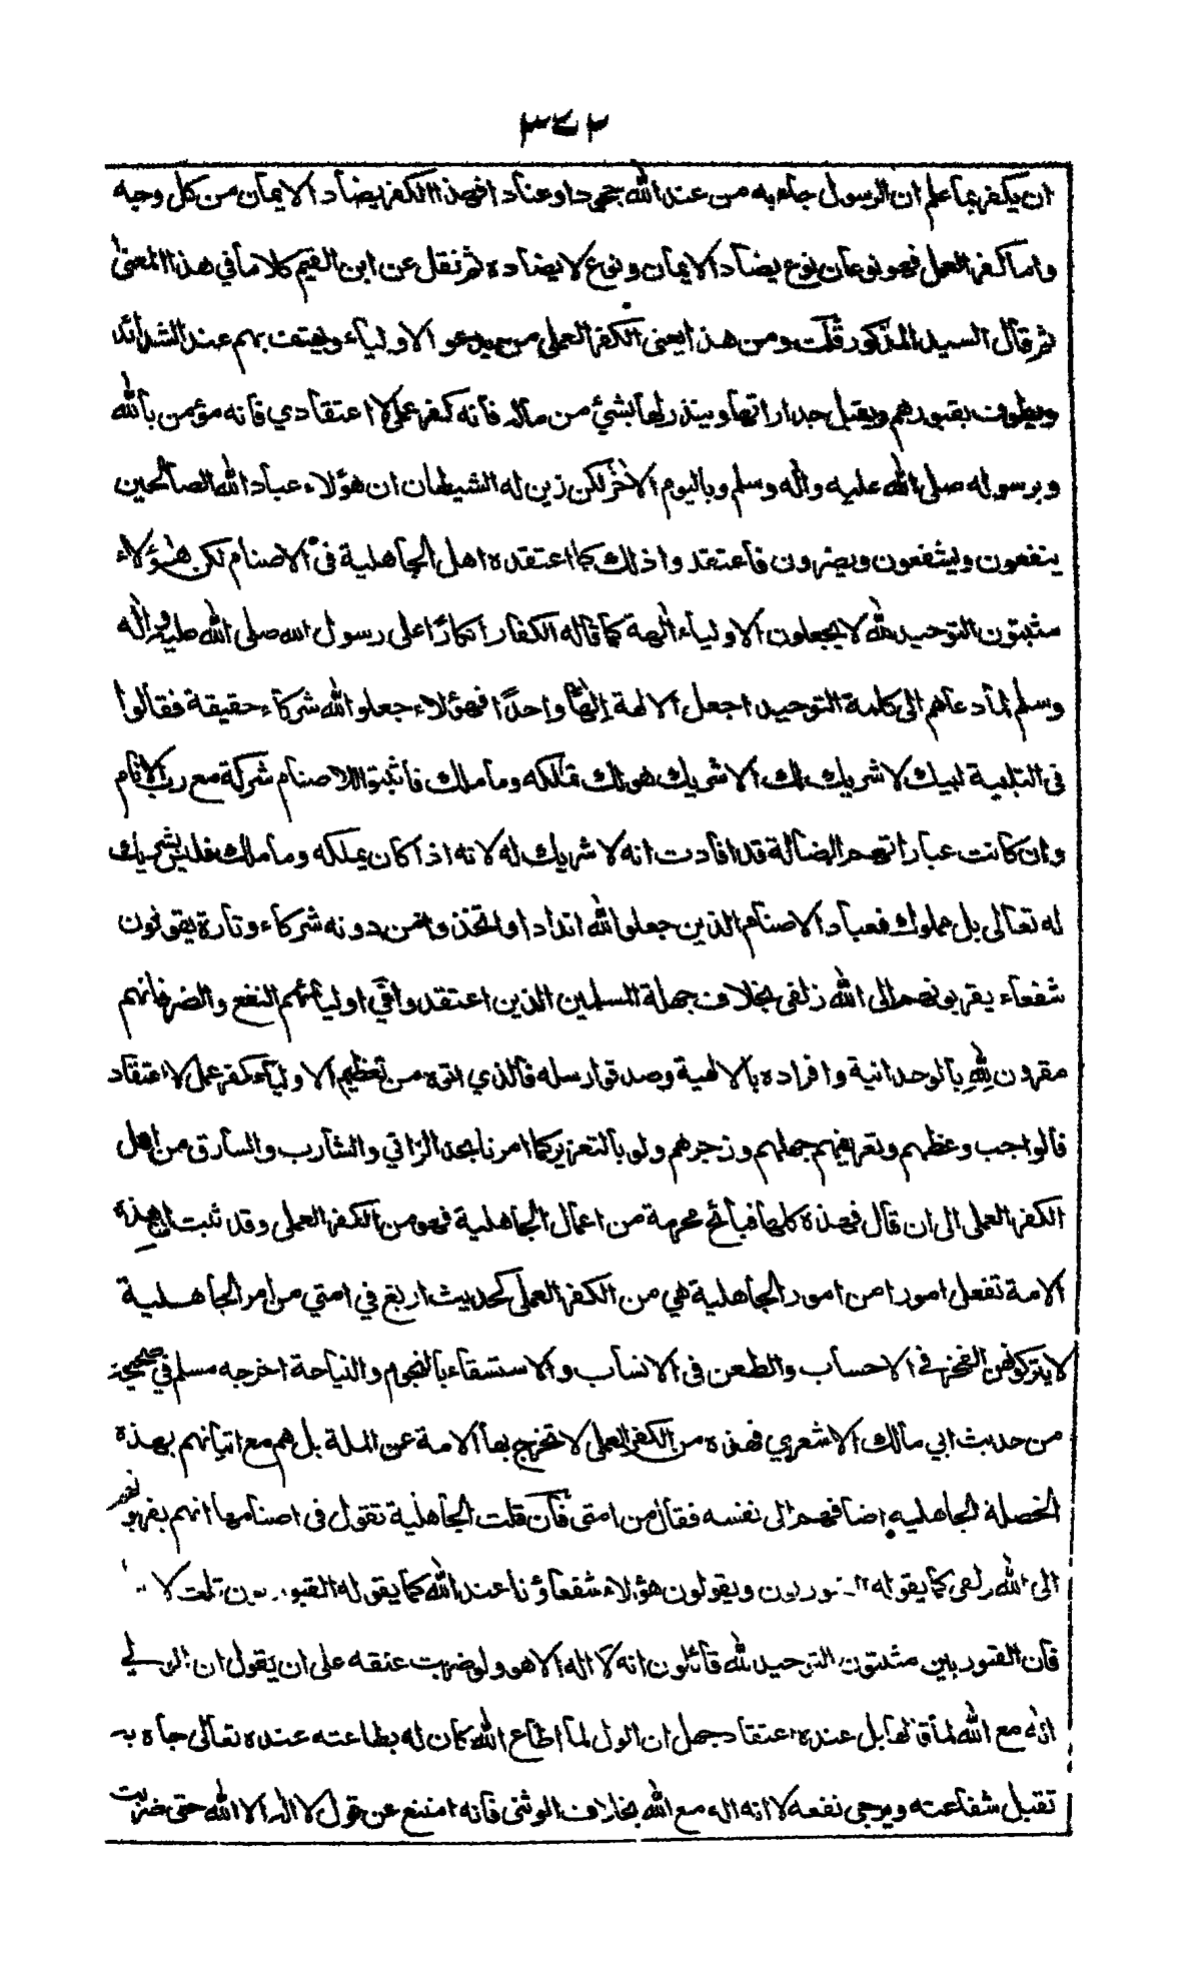 ٣٧٢
ان يكفر بما علم ان الرسول جاء به من عند الله جحودا وعنادا فهذا الكفر يضاد الايمان من كل وجه
واما كفر العمل فهو نوعان نوع يضاد الايمان ونوع لا يضاده ثم نقل عن ابن القيم كلاما في هذا المعنى
ثم قال السيد المذكور قلت ومن هذا يعنى الكفر العملى من يدعو الاولياء ويهتف بهم عند الشدائد
ويطوف بقبورهم ويقبل جداراتها وينذر لها بشئ من ماله فانه كفر عملى لا اعتقادي فانه مؤمن بالله
وبرسوله صلى الله عليه واله وسلم وباليوم الاخر لكن زين له الشيطان ان هؤلاء عباد الله الصالحين
ينفعون ويشفعون ويضرون فاعتقدوا ذلك كما اعتقده اهل الجاهلية فى الاصنام لكن هؤلاء
مثبتون التوحيد لله لا يجعلون الاولياء الهة كما قاله الكفار انكارًا على رسول الله صلى الله عليه واله
وسلم لما دعاهم الى كلمة التوحيد اجعل الالهة إلهًا واحدًا فهؤلاء جعلوا لله شركاء حقيقة فقالوا
فى التلبية لبيك لا شريك لك الا شريك هو لك تملكه وما ملك فاثبتوا للاصنام شركة مع رب الانام
وان كانت عباراتهم الضالة قد افادت انه لا شريك له لانه اذا كان يملكه وما ملك فليس بشريك
له تعالى بل مملوك فعباد الاصنام الذين جعلوا لله اندادا واتخذوا من دونه شركاء وتارة يقولون
شفعاء يقربونهم الى الله زلفى بخلاف جهلة المسلمين الذين اعتقدوا في اوليائهم النفع والضر فانهم
مقرون لله بالوحدانية وافراده بالالهية وصدقوا رسله فالذي اتوه من تعظيم الاولياء كفر عمل لا اعتقاد
فالواجب وعظهم وتعريفهم جهلهم وزجرهم ولو بالتعزير كما امرنا بحد الزاني والشارب والسارق من اهل
الكفر العملى الى ان قال فهذه كلها قبائح محرمة من اعمال الجاهلية فهو من الكفر العملى وقد ثبت ان هذه
الامة تفعل امورا من امور الجاهلية هي من الكفر العملى كحديث اربع في امتي من امر الجاهلية
لا يتركونهن الفخر في الاحساب والطعن فى الانساب والاستسقاء بالنجوم والنياحة اخرجه مسلم في صحيحه
من حديث ابي مالك الاشعري فهذه من الكفر العملى لا تخرج بها الامة عن الملة بل هم مع اتيانهم بهذه
الخصلة الجاهليه اضافهم الى نفسه فقال من امتى فان قلت الجاهلية تقول فى اصنامها انهم يقربونهم
الى الله زلفى كما يقوله القبوريون ويقولون هؤلاء شفعاؤنا عند الله كما يقوله القبوريون قلت لا
فان القبوريين مثبتون التوحيد لله قائلون انه لا اله الا هو ولو ضربت عنقه على ان يقول ان الولي
اله مع الله لما قالها بل عنده اعتقاد جهل ان الولى لما اطاع الله كان له بطاعته عنده تعالى جاه به
تقبل شفاعته ويرجى نفعه لا انه اله مع الله بخلاف الوثنى فانه امتنع عن قول لا اله الا الله حتى ضربت